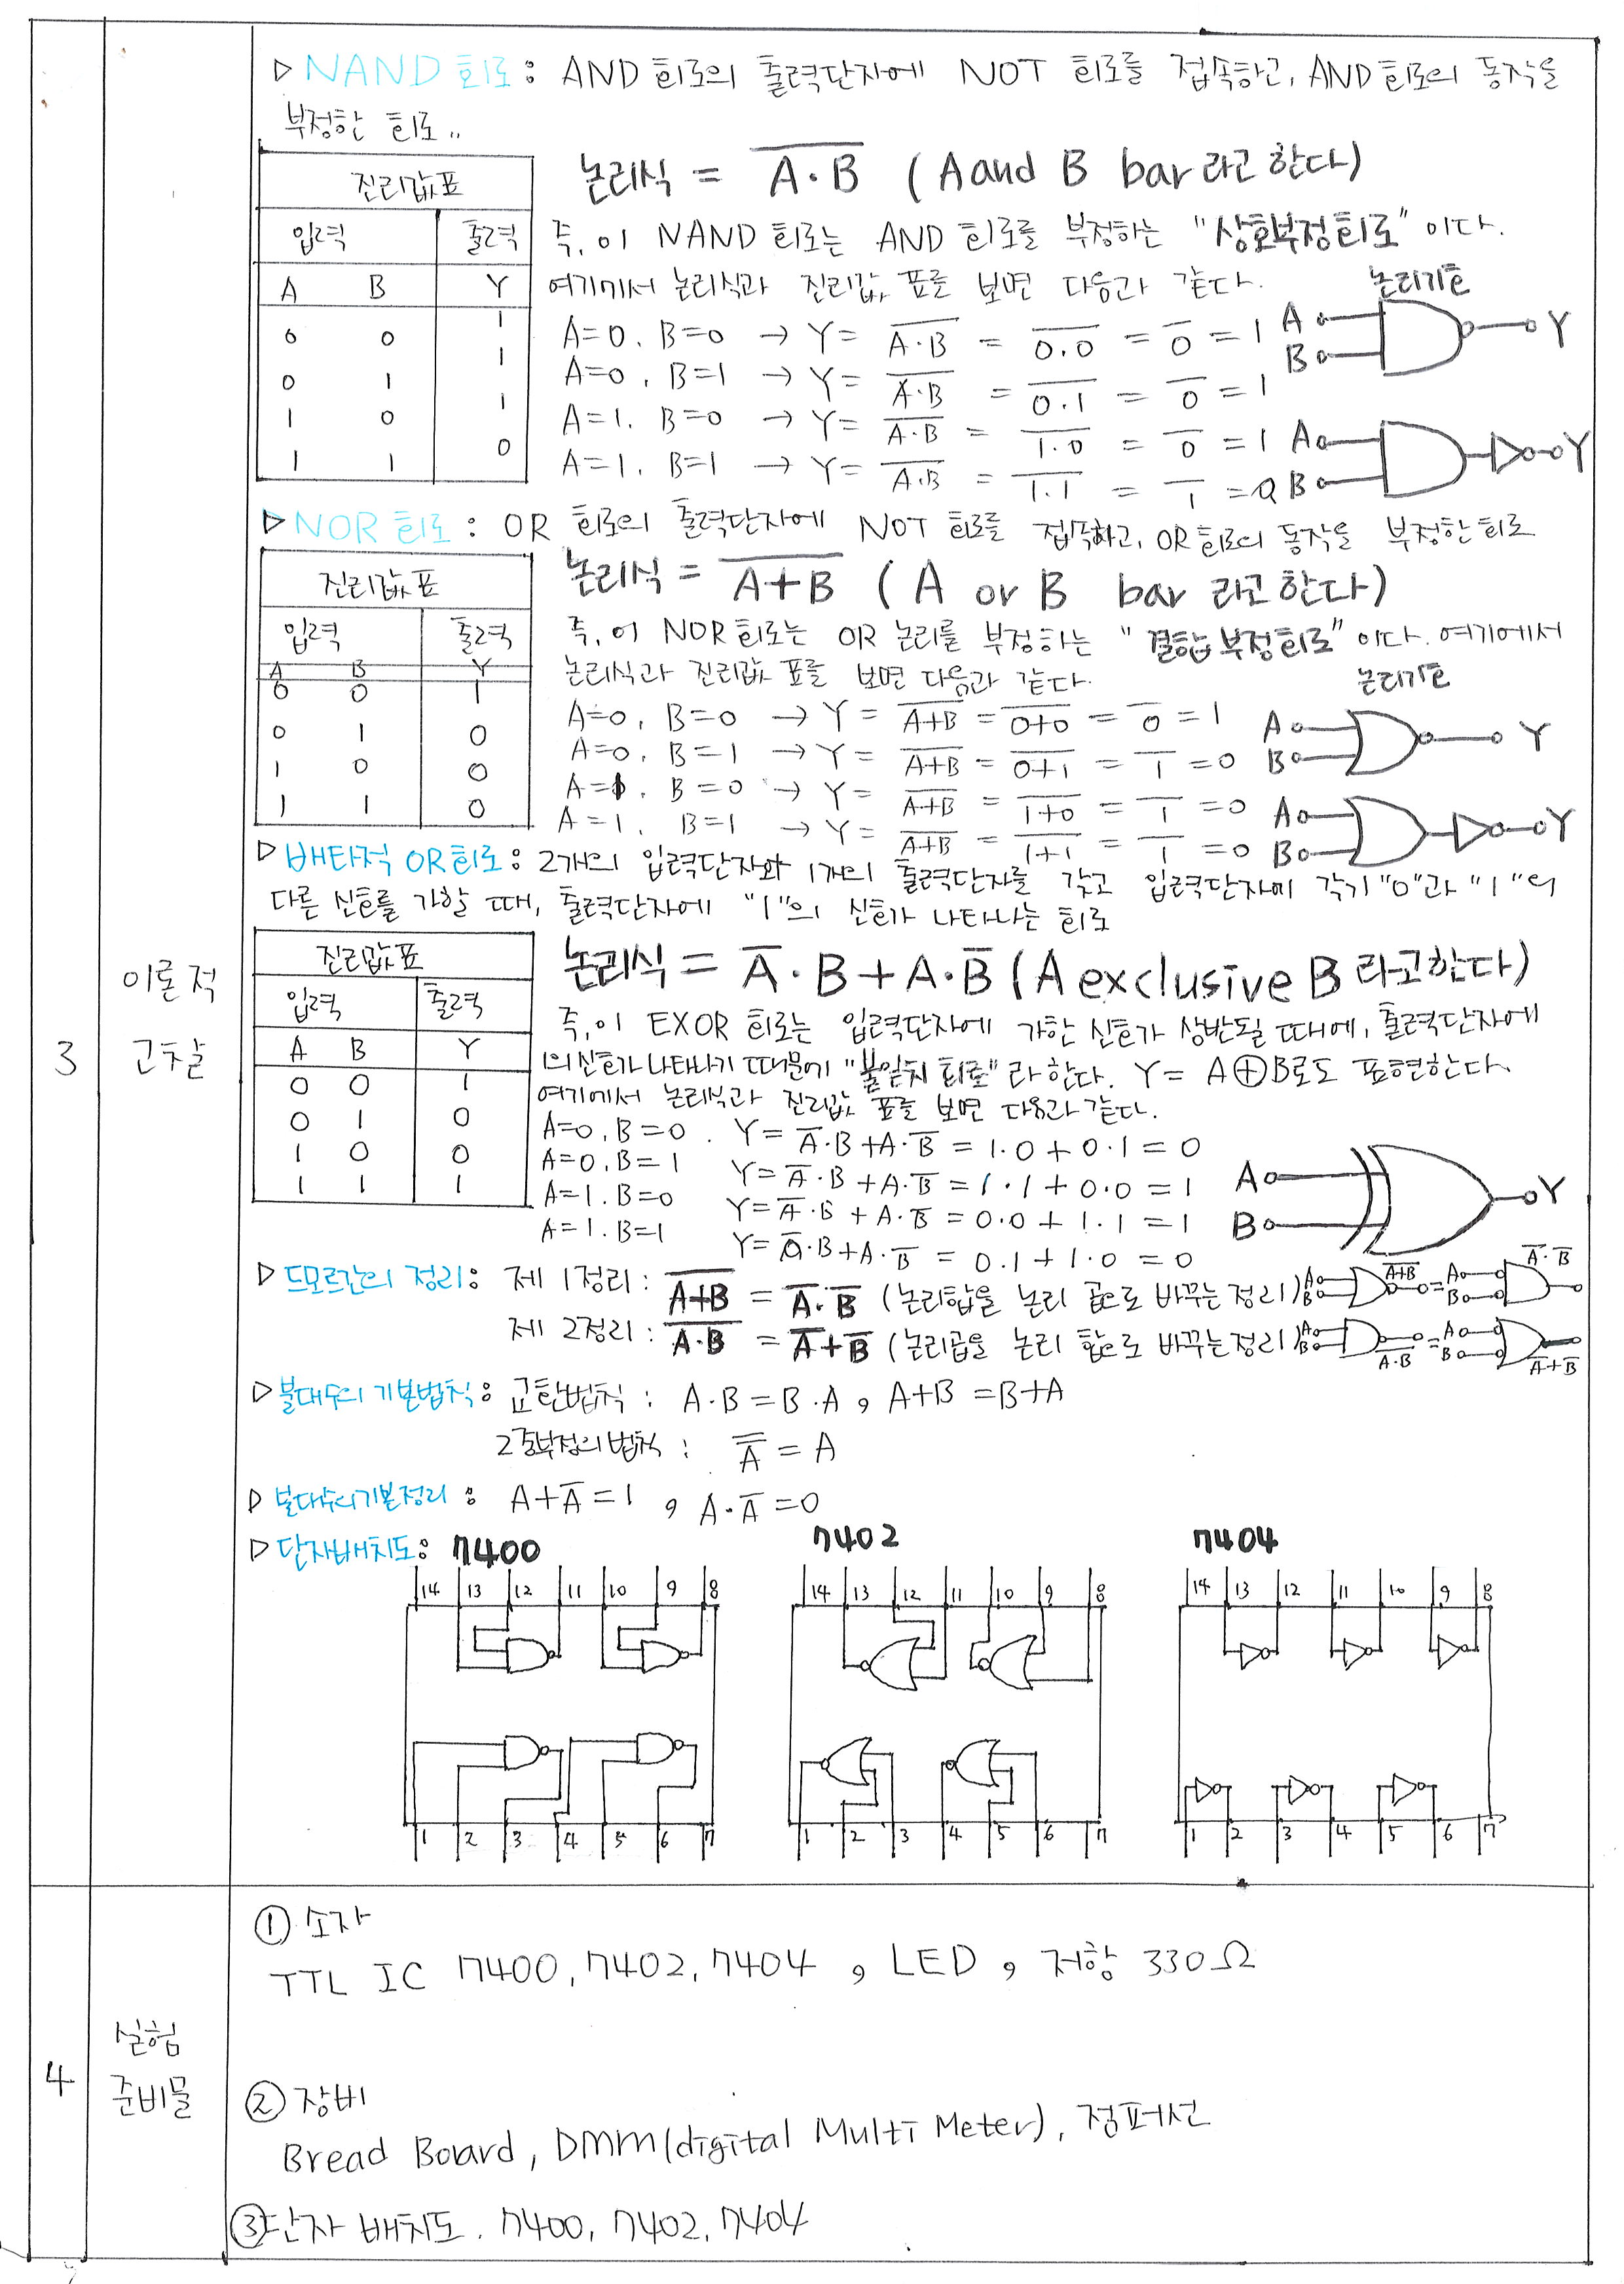 ▷ NAND 회로 : AND 회로의 출력단자에 NOT 회로를 접속하고, AND 회로의 동작을
부정한 회로..
진리값표
입력 출력
A B Y
0 0 1
0 1 1
1 0 1
1 1 0
논리식 = \overline{A·B} (A and B bar 라고 한다)
즉, 이 NAND 회로는 AND 회로를 부정하는 "상호부정회로" 이다.
여기에서 논리식과 진리값 표를 보면 다음과 같다.
논리기호
A=0, B=0 → Y= \overline{A·B} = \overline{0.0} = \overline{0} = 1
A=0, B=1 → Y= \overline{A·B} = \overline{0.1} = \overline{0} = 1
A=1, B=0 → Y= \overline{A·B} = \overline{1.0} = \overline{0} = 1
A=1, B=1 → Y= \overline{A·B} = \overline{1.1} = \overline{1} = 0
A B Y
A B Y
▷ NOR 회로 : OR 회로의 출력단자에 NOT 회로를 접속하고, OR 회로의 동작을 부정한 회로
진리값표
입력 출력
A B Y
0 0 1
0 1 0
1 0 0
1 1 0
논리식 = \overline{A+B} (A or B bar 라고 한다)
즉, 이 NOR 회로는 OR 논리를 부정하는 "결합부정회로" 이다. 여기에서
논리식과 진리값 표를 보면 다음과 같다.
논리기호
A=0, B=0 → Y = \overline{A+B} = \overline{0+0} = \overline{0} = 1
A=0, B=1 → Y= \overline{A+B} = \overline{0+1} = \overline{1} = 0
A=1, B=0 → Y= \overline{A+B} = \overline{1+0} = \overline{1} = 0
A=1, B=1 → Y= \overline{A+B} = \overline{1+1} = \overline{1} = 0
A B Y
A B Y
▷ 배타적 OR회로 : 2개의 입력단자와 1개의 출력단자를 갖고 입력단자에 각기 "0"과 "1"의
다른 신호를 가할 때, 출력단자에 "1"의 신호가 나타나는 회로
진리값표
입력 출력
A B Y
0 0 1
0 1 0
1 0 0
1 1 1
논리식 = \overline{A}·B + A·\overline{B} (A exclusive B 라고 한다)
즉, 이 EXOR 회로는 입력단자에 가한 신호가 상반될 때에, 출력단자에
1의 신호가 나타나기 때문에 "불일치 회로"라 한다. Y= A⊕B로도 표현한다.
여기에서 논리식과 진리값 표를 보면 다음과 같다.
A=0, B=0. Y= \overline{A}·B + A·\overline{B} = 1.0 + 0.1 = 0
A=0, B=1 Y= \overline{A}·B + A·\overline{B} = 1·1 + 0.0 = 1
A=1. B=0 Y= \overline{A}·B + A·\overline{B} = 0.0 + 1.1 = 1
A=1. B=1 Y= \overline{A}·B + A·\overline{B} = 0.1 + 1.0 = 0
A B Y
3 이론적 고찰
▷ 드모르간의 정리 : 제 1정리 : \overline{A+B} = \overline{A}·\overline{B} (논리합을 논리 곱으로 바꾸는 정리) A B \overline{A+B} = A B \overline{A}·\overline{B}
제 2정리 : \overline{A·B} = \overline{A}+\overline{B} (논리곱을 논리 합으로 바꾸는 정리) A B \overline{A·B} = A B \overline{A}+\overline{B}
▷ 불대수의 기본법칙 : 교환법칙 : A·B = B·A , A+B = B+A
2중부정의 법칙 : \overline{\overline{A}} = A
▷ 불대수의 기본정리 : A+\overline{A} = 1 , A·\overline{A} = 0
▷ 단자배치도 : 7400 7402 7404
14 13 12 11 10 9 8
1 2 3 4 5 6 7
14 13 12 11 10 9 8
1 2 3 4 5 6 7
14 13 12 11 10 9 8
1 2 3 4 5 6 7
4 실험 준비물
① 소자
TTL IC 7400, 7402, 7404 , LED , 저항 330Ω
② 장비
Bread Board, DMM(digital Multi Meter), 점퍼선
③ 단자 배치도. 7400, 7402, 7404